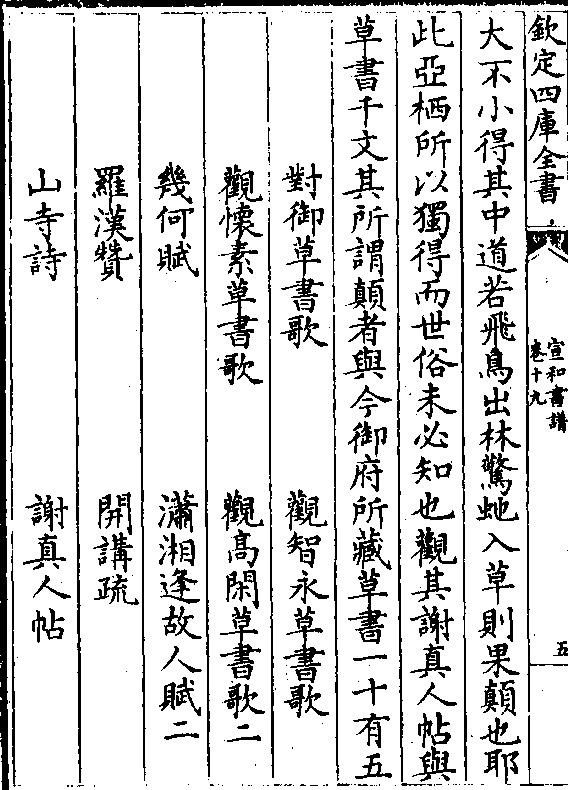 欽定四庫全書
宣和書譜
卷十九
五
大不小得其中道若飛鳥出林驚虵入草則果顛也耶
此亞栖所以獨得而世俗未必知也觀其謝真人帖與
草書千文其所謂顛者與今御府所藏草書一十有五
對御草書歌 觀智永草書歌
觀懷素草書歌 觀高閑草書歌二
幾何賦 瀟湘逢故人賦二
羅漢贊 開講疏
山寺詩 謝真人帖